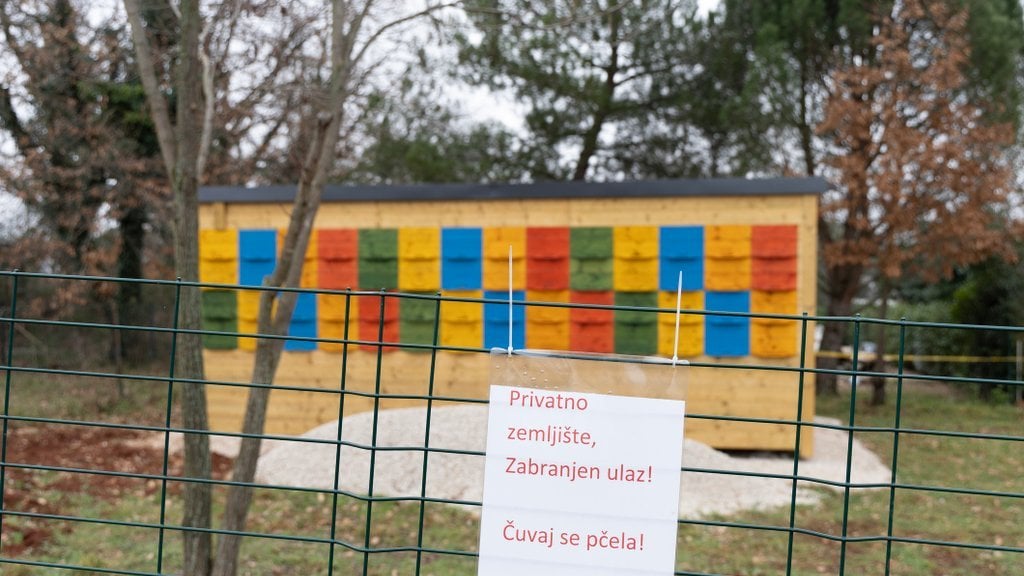 Privatno
zemljište,
Zabranjen ulaz!
Čuvaj se pčela!